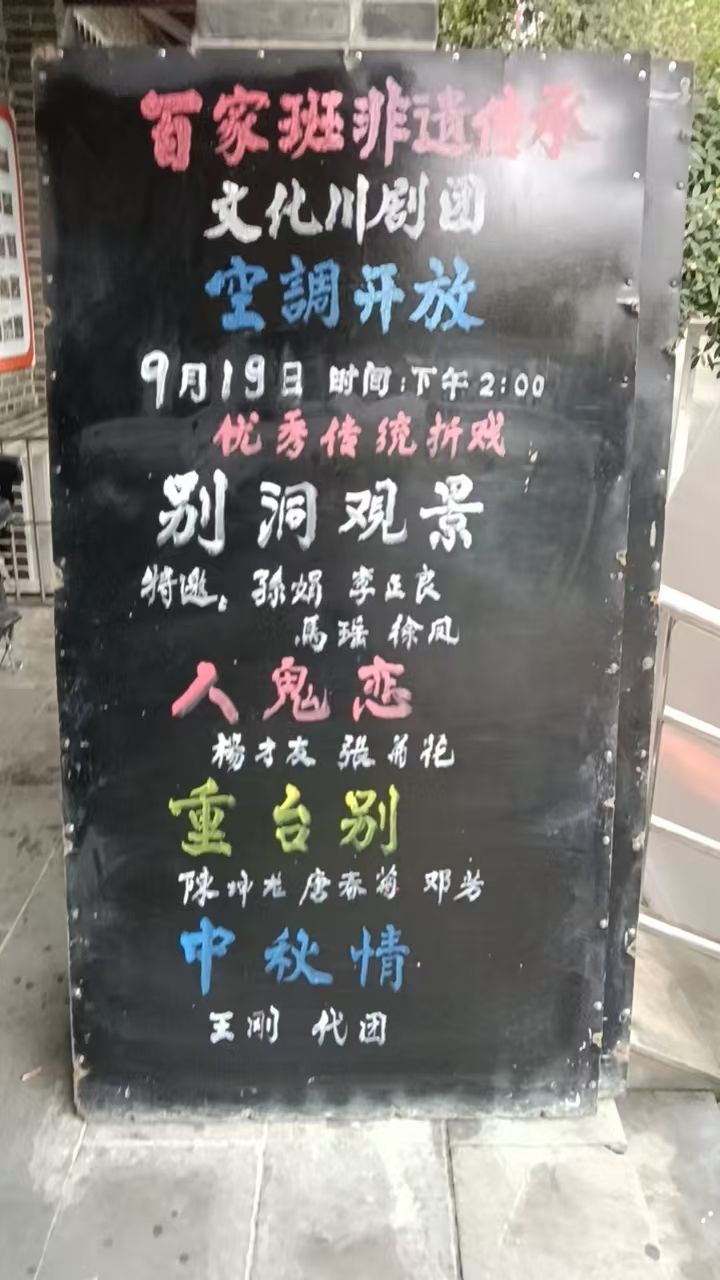 百家班非遗传承
文化川剧团
空調开放
9月19日 时间:下午2:00
优秀传统折戏
别洞观景
特邀: 孙娟 李正良
馬瑶 徐凤
人鬼恋
楊才友 張菊花
重台别
陳坤龙 唐春菊 邓芳
中秋情
王刚 代团